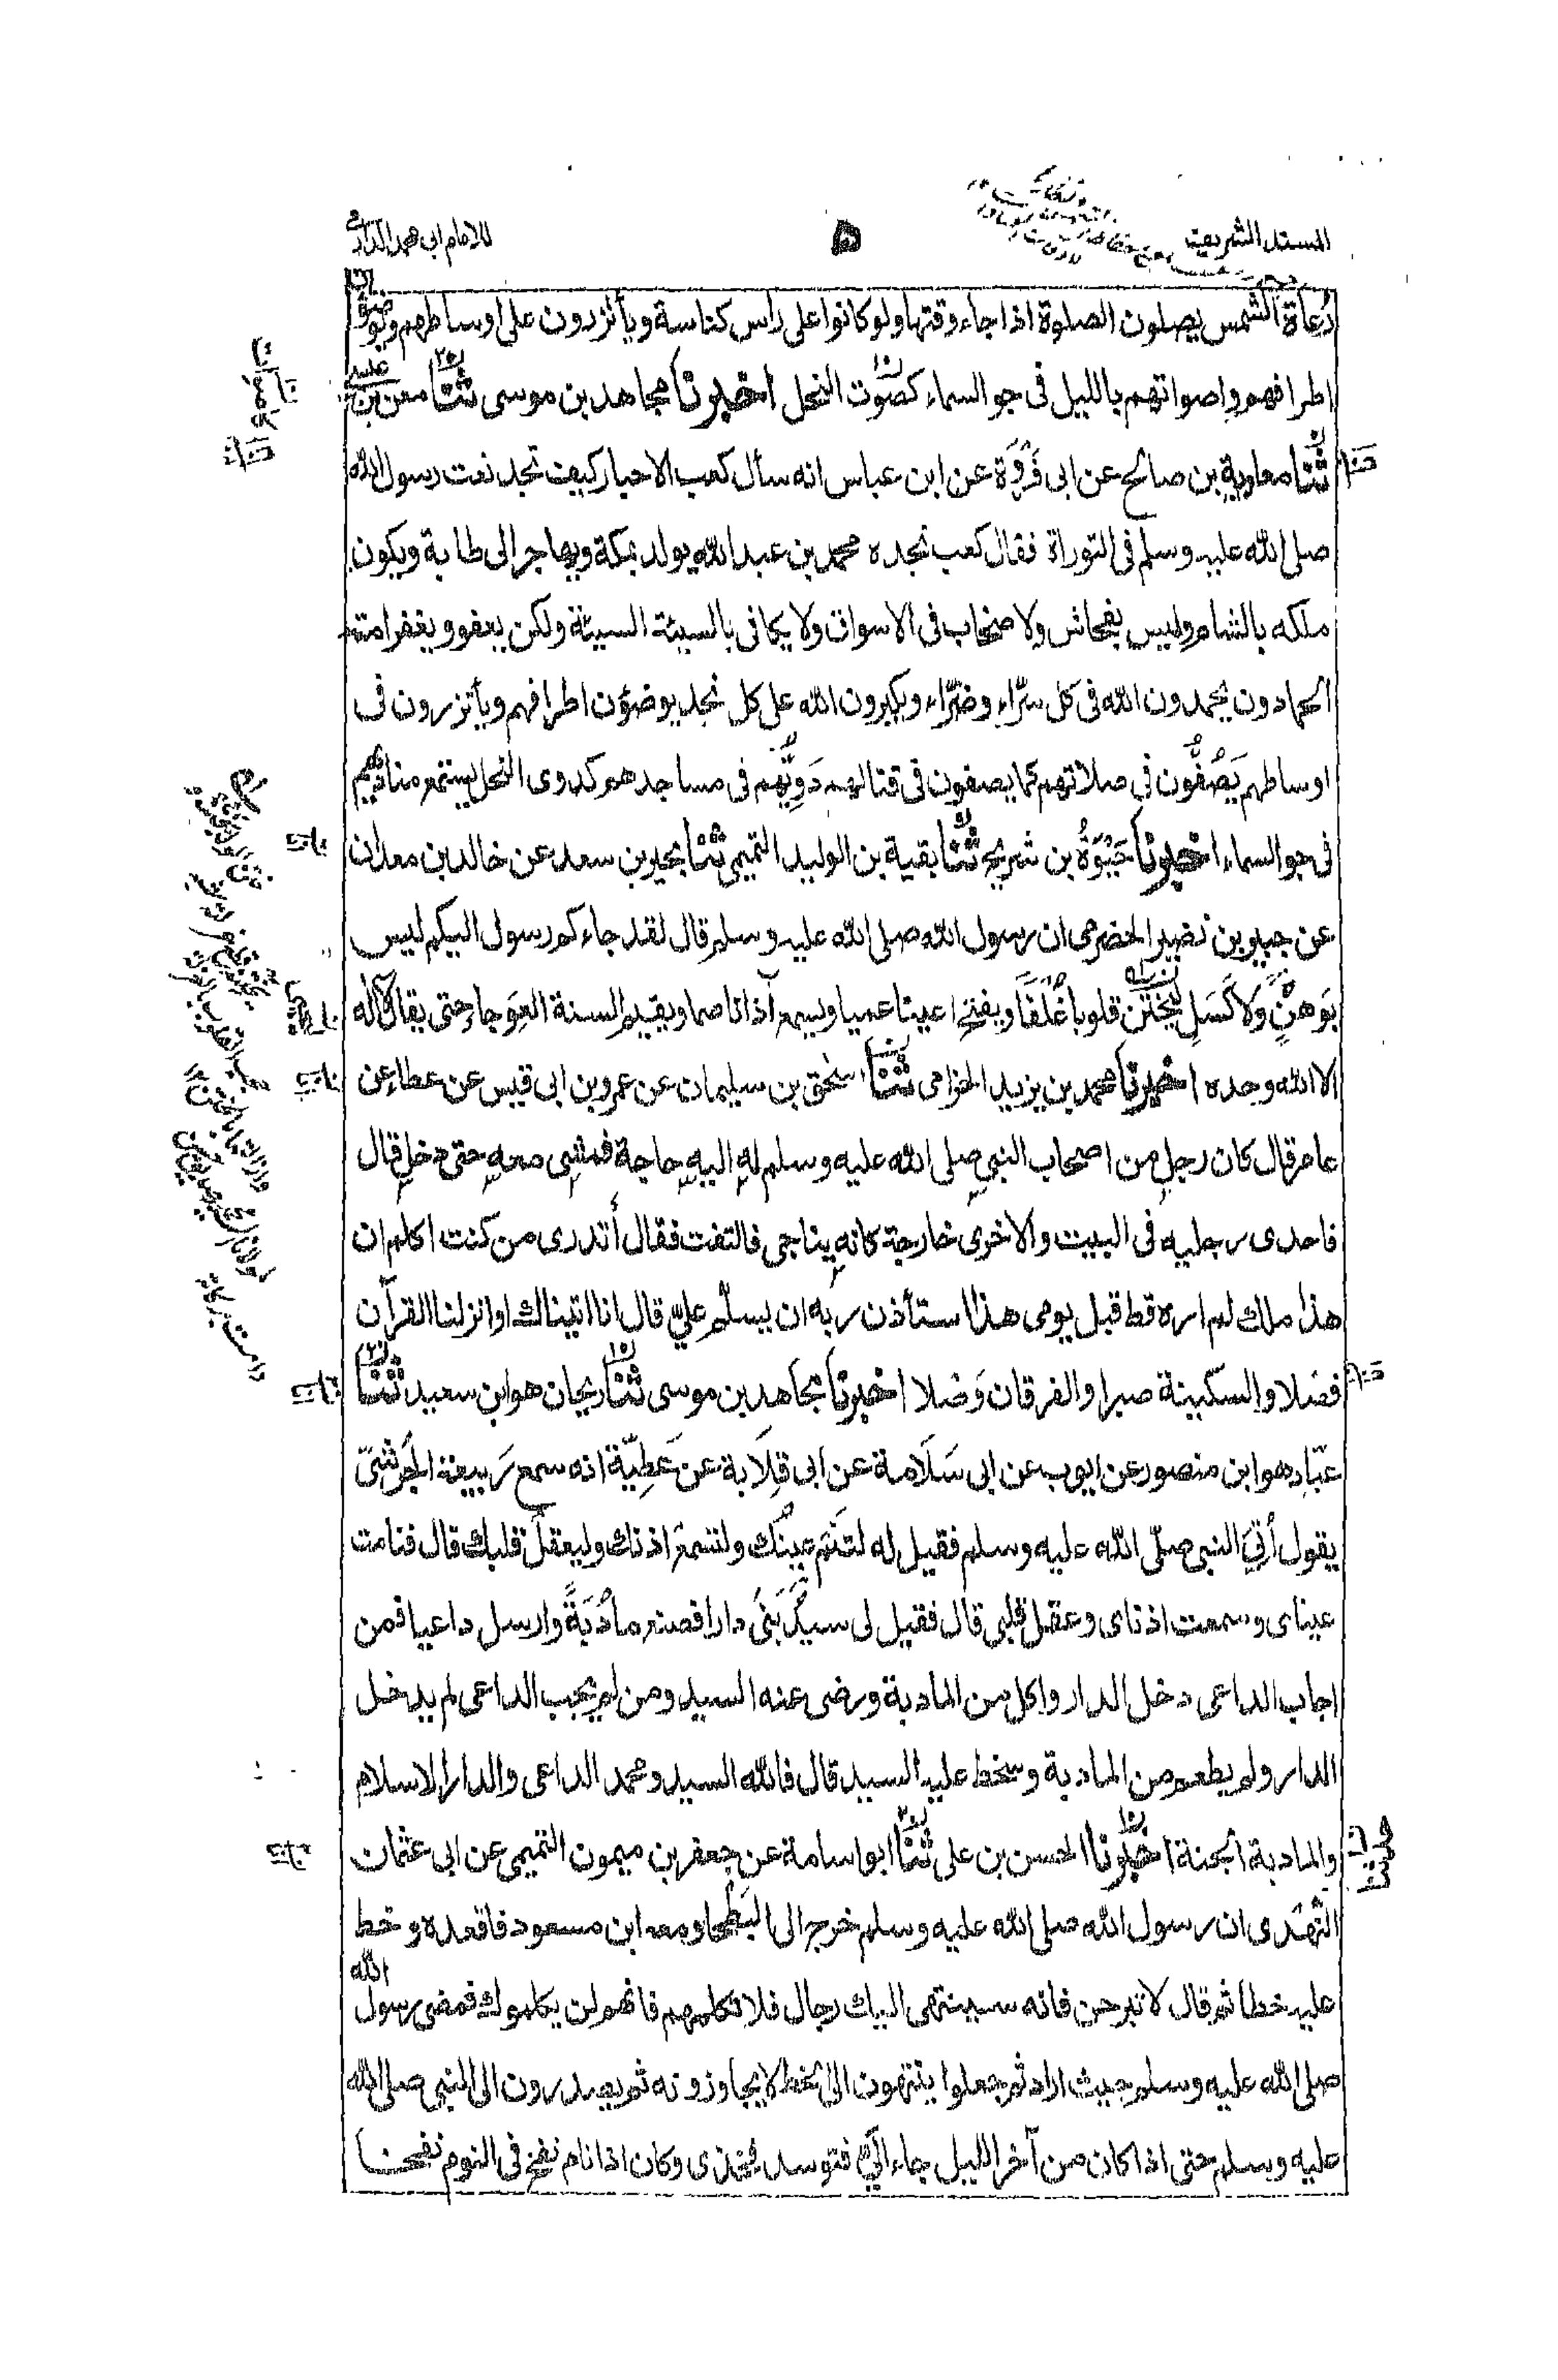 المسند الشريف
۵
للامام ابى محمد الدارمى
رُعاة الشمس يصلون الصلوة اذا جاء وقتها ولو كانوا على راس كناسة ويأتزرون على اوساطهم ويوضؤن
اطرافهم واصواتهم بالليل فى جو السماء كصوت النحل اخبرنا مجاهد بن موسى ثنا معن بن عيسى
ثنا معاوية بن صالح عن ابى فَرْوَة عن ابن عباس انه سأل كعب الاحبار كيف تجد نعت رسول الله
صلى الله عليه وسلم فى التوراة فقال كعب نجده محمد بن عبد الله يولد بمكة ويهاجر الى طابة ويكون
ملكه بالشام وليس بفحاش ولا صخاب فى الاسواق ولا يكافى بالسيئة السيئة ولكن يعفو ويغفر امته
الحمادون يحمدون الله فى كل سرّاء وضرّاء ويكبرون الله على كل نجد يوضؤن اطرافهم ويأتزرون فى
اوساطهم يَصُفُّون فى صلاتهم كما يصفون فى قتالهم دَوِيُّهم فى مساجدهم كدوى النحل يستمع مناديهم
فى جو السماء اخبرنا حَيْوَةُ بن شريح ثنا بقية بن الوليد التميمى ثنا بحير بن سعد عن خالد بن معدان
عن جبير بن نفير الحضرمى ان رسول الله صلى الله عليه وسلم قال لقد جاءكم رسول اليكم ليس
بوَهِنٍ ولا كَسَلٍ ليختن قلوبا غُلْفًا ويفتح اعينا عميا ويسمع آذانا صما ويقيم السنة العوجاء حتى يقال لا اله
الا الله وحده اخبرنا محمد بن يزيد الحزامى ثنا اسحق بن سليمان عن عمرو بن ابى قيس عن عطاء عن
عامر قال كان رجل من اصحاب النبى صلى الله عليه وسلم له اليه حاجة فمشى معه حتى دخل قال
فاحدى رجليه فى البيت والاخرى خارجة كانه يناجى فالتفت فقال أتدرى من كنت اكلم ان
هذا ملك لم اره قط قبل يومى هذا استأذن ربه ان يسلّم علىّ قال انا اتيناك او انزلنا القرآن
فصلا والسكينة صبرا والفرقان وَصْلا اخبرنا مجاهد بن موسى ثنا ريحان هو ابن سعيد ثنا
عبّاد هو ابن منصور عن ايوب عن ابى سَلَامة عن ابى قِلَابة عن عَطِيّة انه سمع رَبيعة الجُرَشىّ
يقول أُتِىَ النبى صلّى الله عليه وسلم فقيل له لتَنَمْ عينُك ولتسمع اذنك وليعقل قلبك قال فنامت
عيناى وسمعت اذناى وعقل قلبى قال فقيل لى سيّدٌ بَنى دارا فصنع مأدُبَةً وارسل داعيا فمن
اجاب الداعى دخل الدار واكل من المادبة ورضى عنه السيد ومن لم يجب الداعى لم يدخل
الدار ولم يطعم من المادبة وسخط عليه السيد قال فالله السيد ومحمد الداعى والدار الاسلام
والمادبة الجنة اخبرنا الحسن بن على ثنا ابو اسامة عن جعفر بن ميمون التميمى عن ابى عثمان
النَّهْدى ان رسول الله صلى الله عليه وسلم خرج الى البَطْحا ومعه ابن مسعود فاقعده وخط
عليه خطا ثم قال لا تبرحن فانه سينتهى اليك رجال فلا تكلمهم فانهم لن يكلموك فمضى رسول الله
صلى الله عليه وسلم حيث اراد ثم جعلوا ينتهون الى الخط لا يجاوزونه ثم يصدرون الى النبى صلى الله
عليه وسلم حتى اذا كان من آخر الليل جاء الىّ فتوسد فخذى وكان اذا نام نفخ فى النوم نفخا